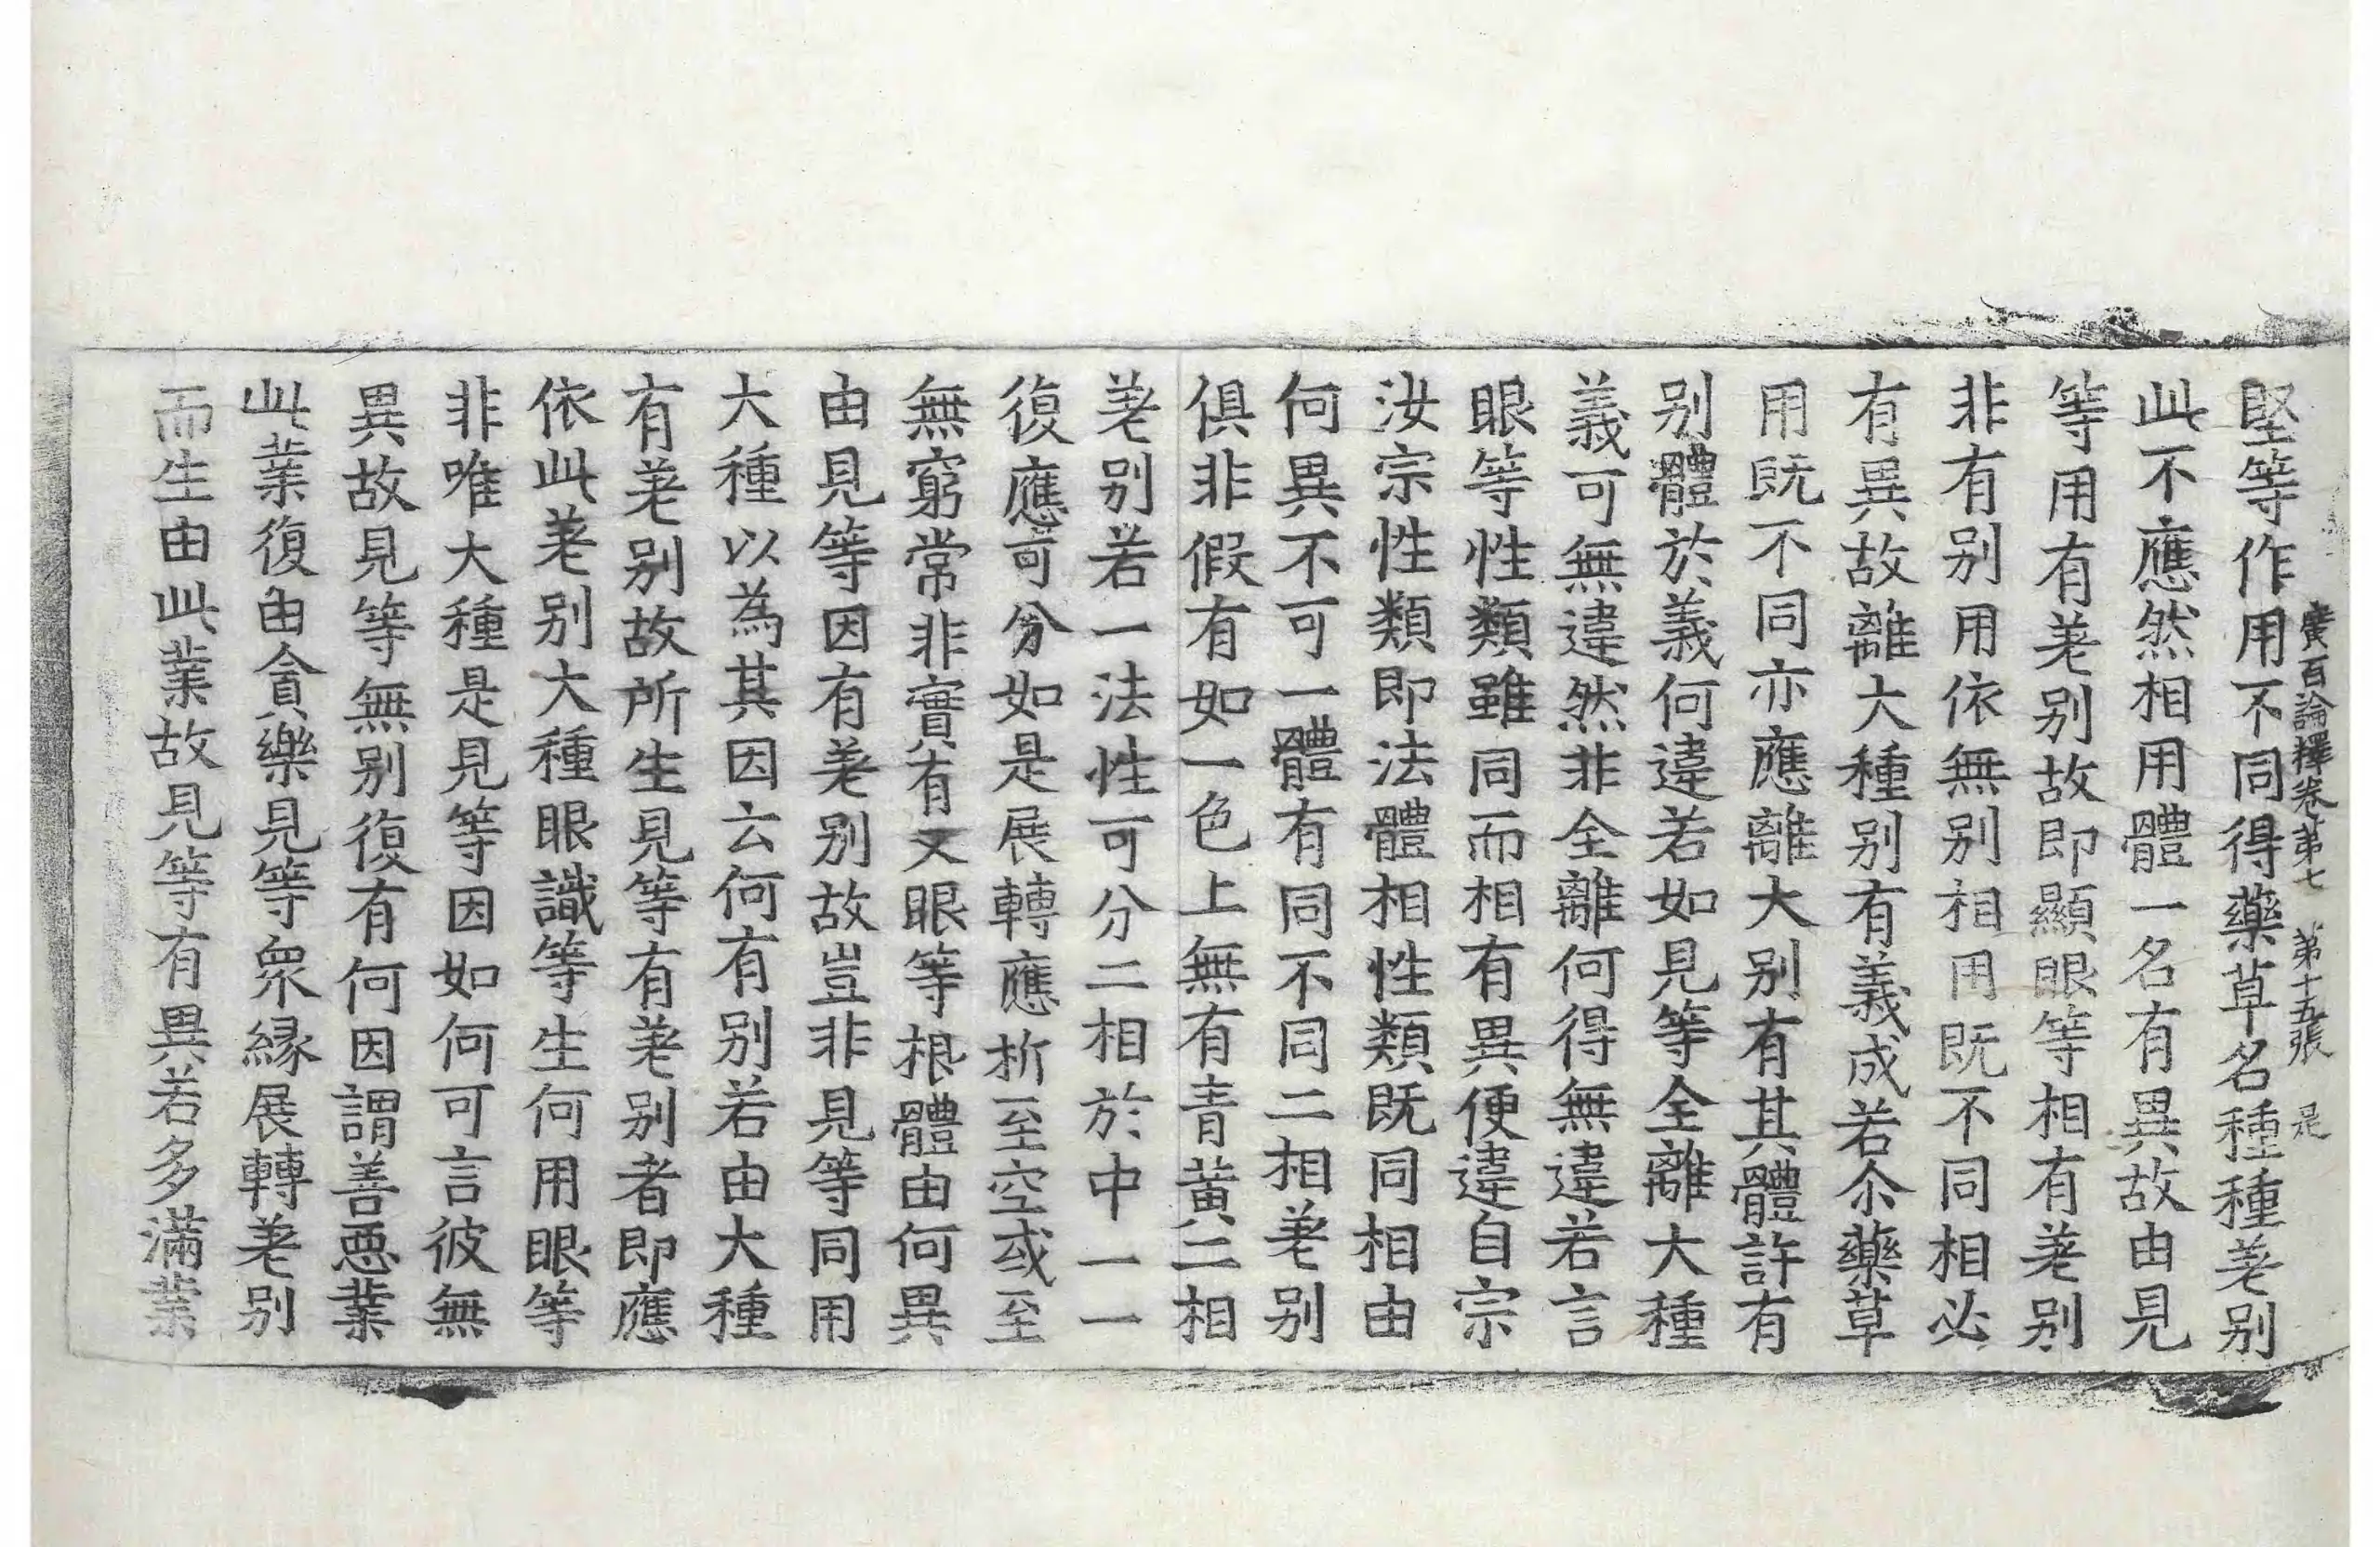 廣百論釋卷第七 第十五張 是
堅等作用不同得藥草名種種差别
此不應然相用體一名有異故由見
等用有差别故即顯眼等相有差别
非有别用依無别相用既不同相必
有異故離大種别有義成若尒藥草
用既不同亦應離大别有其體許有
别體於義何違若如見等全離大種
義可無違然非全離何得無違若言
眼等性類雖同而相有異便違自宗
汝宗性類即法體相性類既同相由
何異不可一體有同不同二相差别
俱非假有如一色上無有青黄二相
差别若一法性可分二相於中一一
復應可分如是展轉應析至空或至
無窮常非實有又眼等根體由何異
由見等因有差别故豈非見等同用
大種以為其因云何有别若由大種
有差别故所生見等有差别者即應
依此差别大種眼識等生何用眼等
非唯大種是見等因如何可言彼無
異故見等無别復有何因謂善惡業
此業復由貪樂見等衆縁展轉差别
而生由此業故見等有異若多滿業